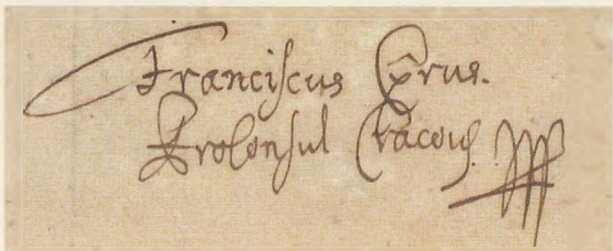 Franciscus Cyrus.
Proconsul Cracouiensis